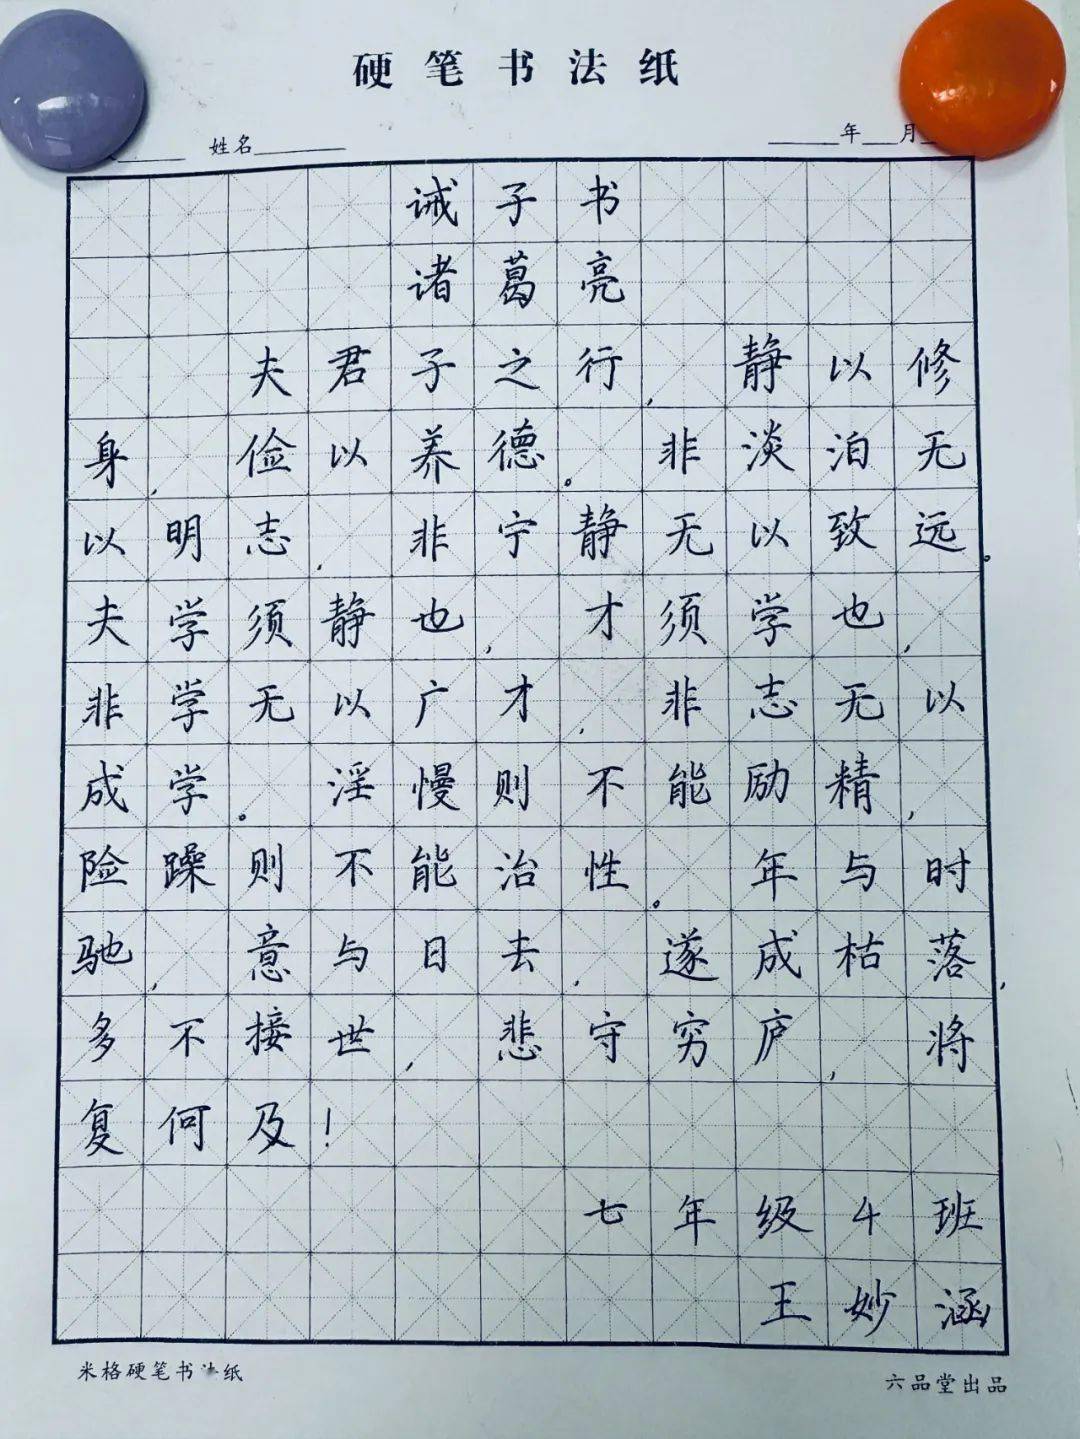 硬笔书法纸
姓名 年 月
诫子书
诸葛亮
夫君子之行，静以修
身，俭以养德。非淡泊无
以明志，非宁静无以致远。
夫学须静也，才须学也，
非学无以广才，非志无以
成学。淫慢则不能励精，
险躁则不能治性。年与时
驰，意与日去，遂成枯落，
多不接世，悲守穷庐，将
复何及！
七年级4班
王妙涵
米格硬笔书法纸
六品堂出品